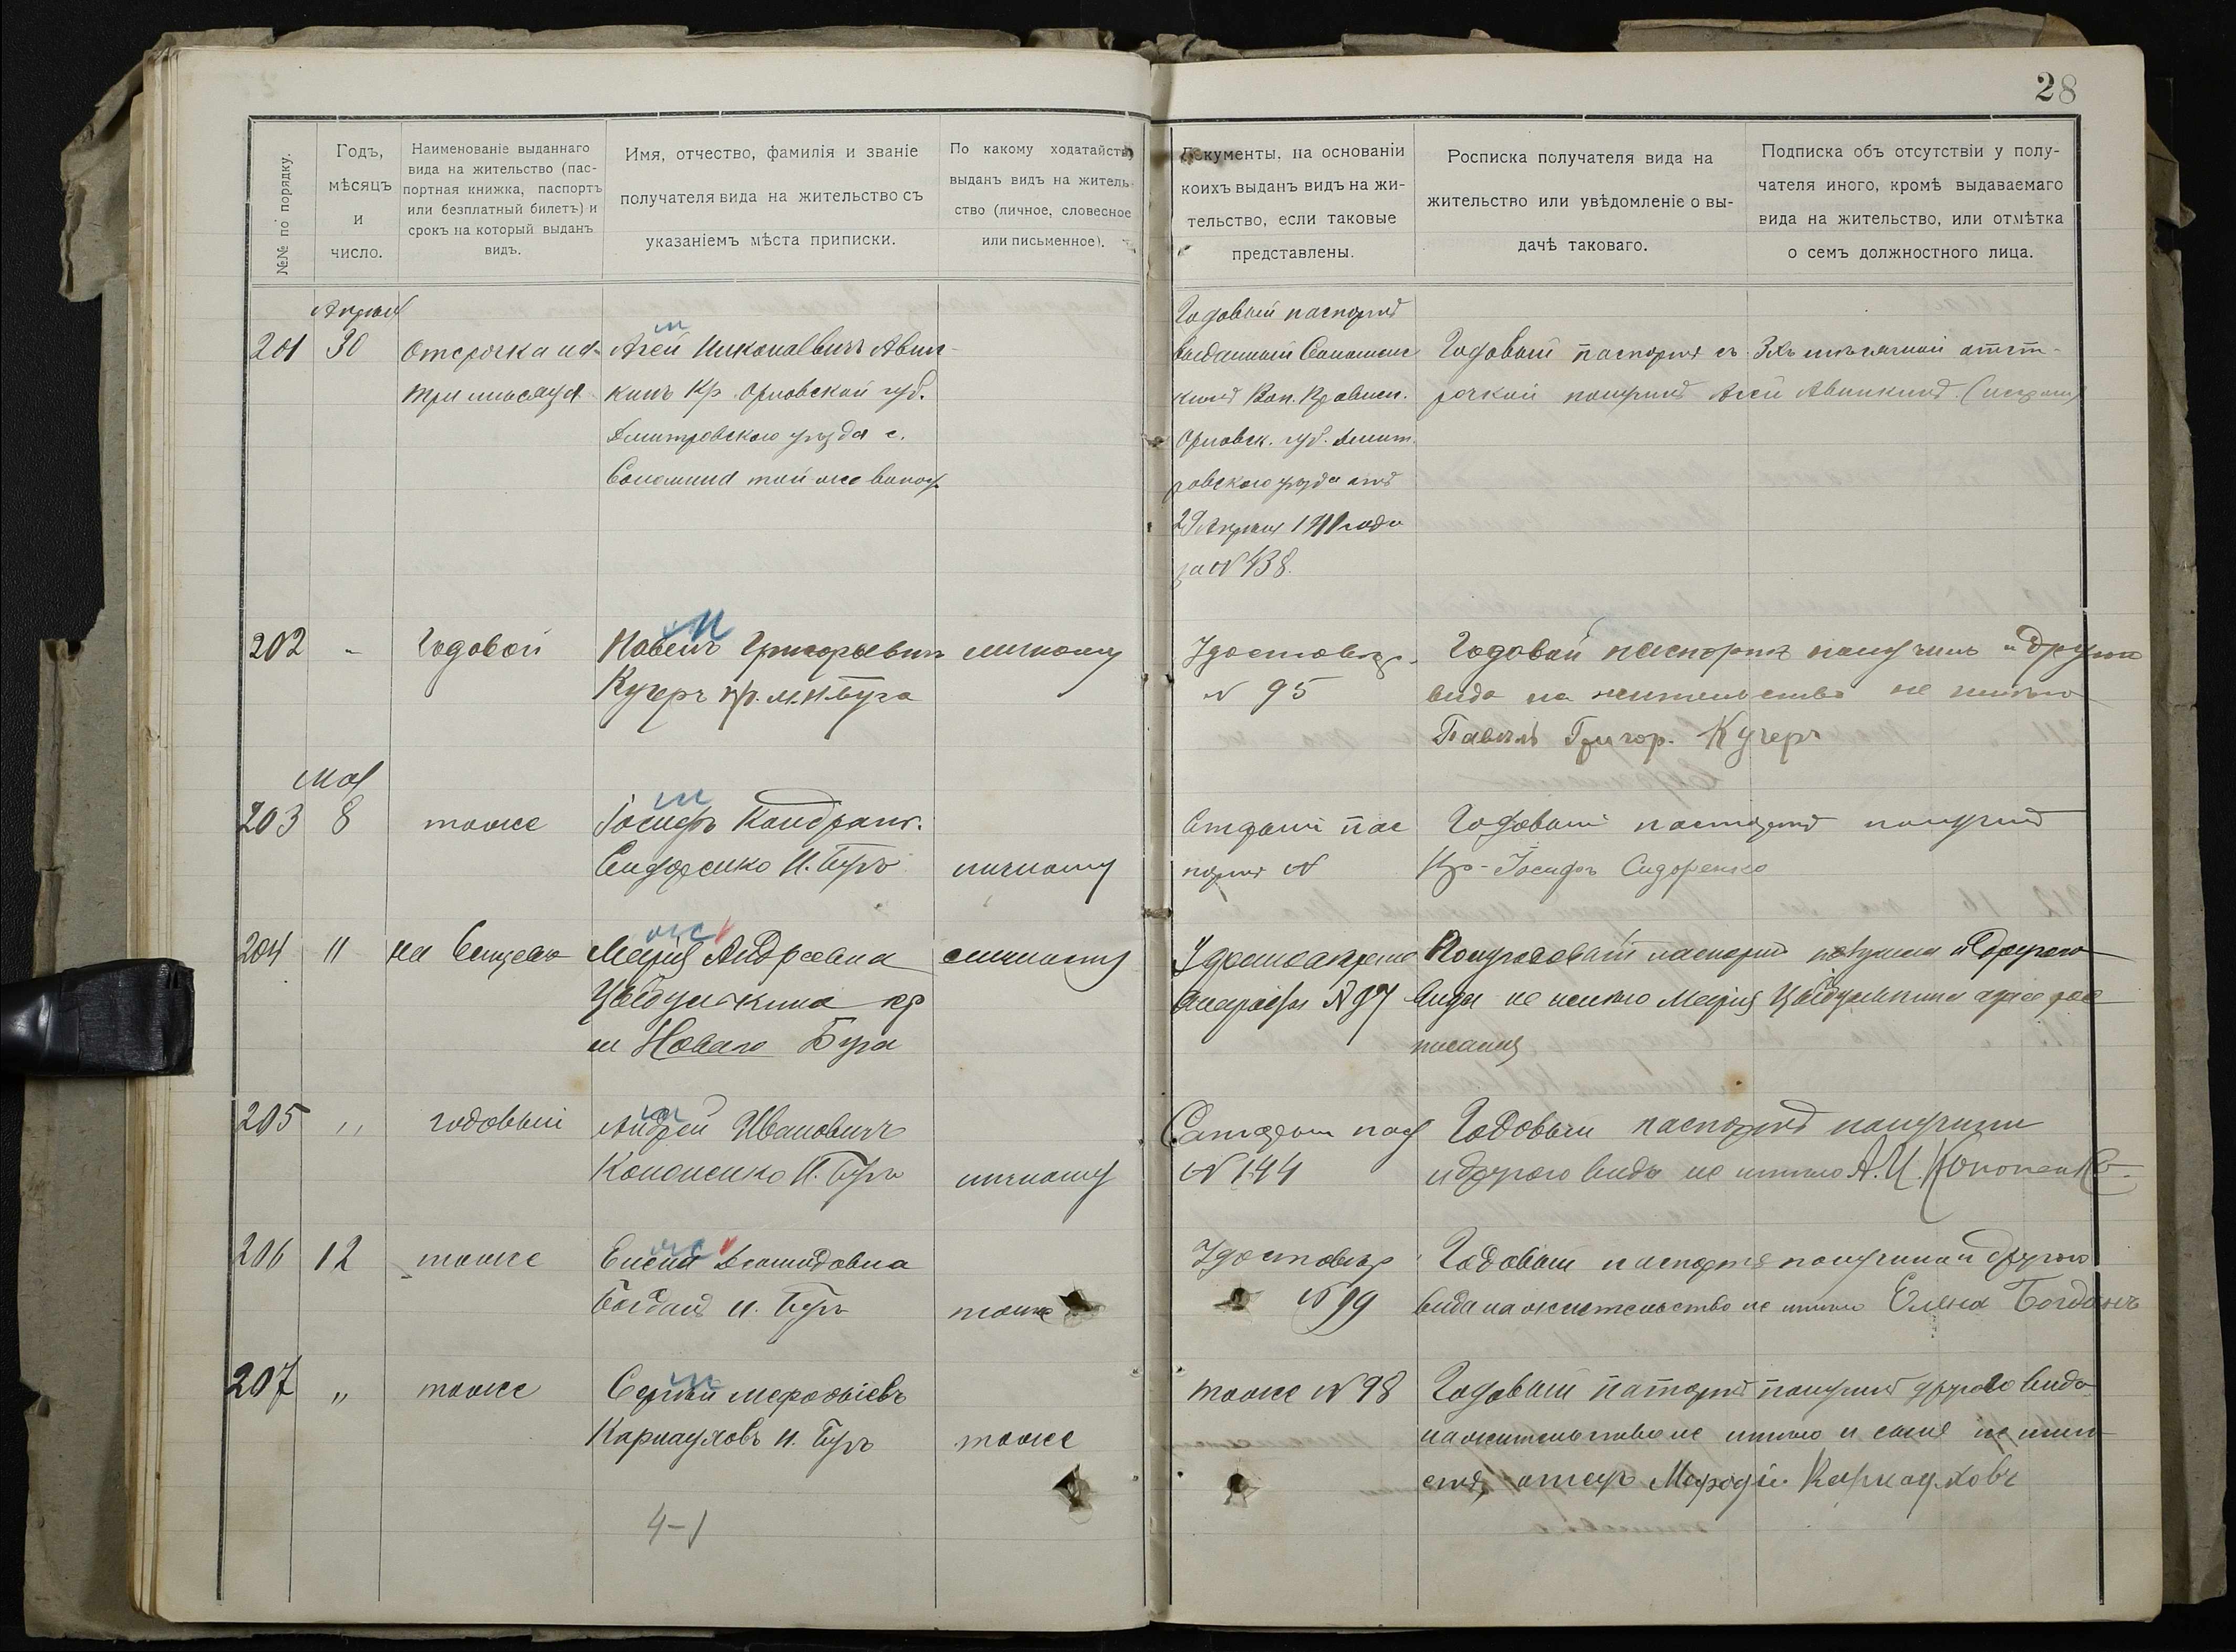 28
№№ по порядку.
Годъ,
мѣсяцъ
и
число.
Наименованіе выданнаго
вида на жительство (пас-
портная книжка, паспортъ
или безплатный билетъ) и
срокъ на который выданъ
видъ.
Имя, отчество, фамилія и званіе
получателя вида на жительство съ
указаніемъ мѣста приписки.
По какому ходатайству
выданъ видъ на житель-
ство (личное, словесное
или письменное).
Документы, на основаніи
коихъ выданъ видъ на жи-
тельство, если таковые
представлены.
Росписка получателя вида на
жительство или увѣдомленіе о вы-
дачѣ таковаго.
Подписка объ отсутствіи у полу-
чателя иного, кромѣ выдаваемаго
вида на жительство, или отмѣтка
о семъ должностного лица.
Апрѣля
201 30
Отсрочка на
три мѣсяца
м
Агей Николаевичъ Авин-
кинъ Кр. Орловской губ.
Дмитровскаго уѣзда с.
той же волос.
Годовый паспортъ
выданный
Вол. Правлен.
Орловск. губ. Дмит-
ровскаго уѣзда отъ
29 Апрѣля 1911 года
за № 438.
Годовый паспортъ съ 3хъ мѣсячной отст-
рочкой получилъ Агей Авинкинъ
202 "
Годовой
м
Павелъ Григорьевичъ
Кучеръ кр. м. Н. Буга
личному
Удостовѣр.
№ 95
Годовой паспортъ получилъ и другого
вида на жительство не имѣю
Павелъ Григор. Кучеръ
Мая
203 8
тоже
м
Іосифъ Кондрат.
Сидоренко Н. Бугъ
личному
Старый пас
портъ №
Годовый паспортъ получилъ
Кр. Іосифъ Сидоренко
204 11
на
ж
Марія Андреевна
кр
м Новаго Буга
личному
№ 97
Полугодовый паспортъ получила и другого
вида не имѣю Марія
205 "
годовый
м
Андрей Ивановичъ
Кононенко Н. Бугъ
личному
Старый пас
№ 144
Годовый паспортъ получилъ
и другого вида не имѣю А. И. Кононенко
206 12
тоже
ж
Елена Демидовна
Богданъ Н. Бугъ
тоже
Удостовѣр
№ 99
Годовый паспортъ получила и другого
вида на жительство не имѣю Елена Богданъ
207 "
тоже
м
Сергѣй Мефодьіевъ
Карнауховъ Н. Бугъ
тоже
тоже № 98
Годовый паспортъ получилъ другого вида
на жительство не имѣю и
отецъ Мефодій Карнауховъ
4-1